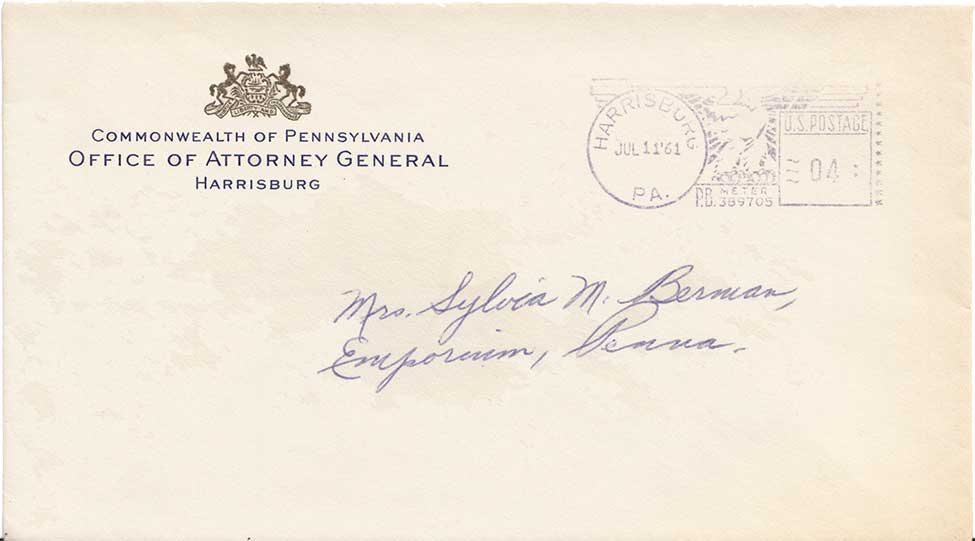 COMMONWEALTH OF PENNSYLVANIA
OFFICE OF ATTORNEY GENERAL
HARRISBURG
HARRISBURG
JUL 11 '61
PA.
U.S. POSTAGE
04
P.B. METER 389705
Mrs. Sylvia M. Berman,
Emporium, Penna.